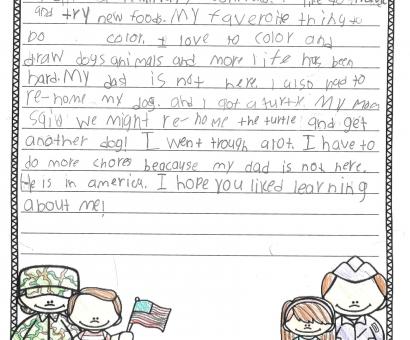 and try new foods. My faverorite thing to
Do color. I love to color and
draw dogs animals and more life has been
hard. My dad is not here. I also had to
re-home my dog. and I got a turtle. My mom
said we might re-home the turtle and get
another dog! I went trough alot. I have to
do more chores beacause my dad is not here.
He is in america. I hope you liked learning
about me!